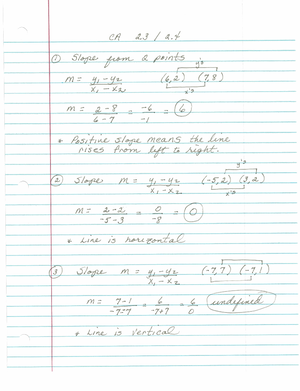 CA 2.3 / 2.4
① Slope from 2 points
y's
m = y₁ - y₂ / x₁ - x₂ (6,2) (7,8)
x's
m = 2 - 8 / 6 - 7 = -6 / -1 = 6
* Positive slope means the line
rises from left to right.
y's
② Slope m = y₁ - y₂ / x₁ - x₂ (-5,2) (3,2)
x's
m = 2 - 2 / -5 - 3 = 0 / -8 = 0
* Line is horizontal
③ Slope m = y₁ - y₂ / x₁ - x₂ (-7,7) (-7,1)
m = 7 - 1 / -7 - -7 = 6 / -7+7 = 6 / 0 undefined
* Line is vertical